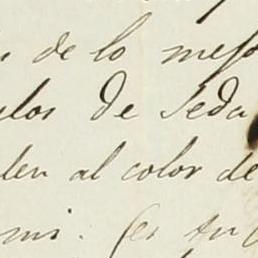 de lo mejo
ulos de Seda
len al color de
mi. Es tu